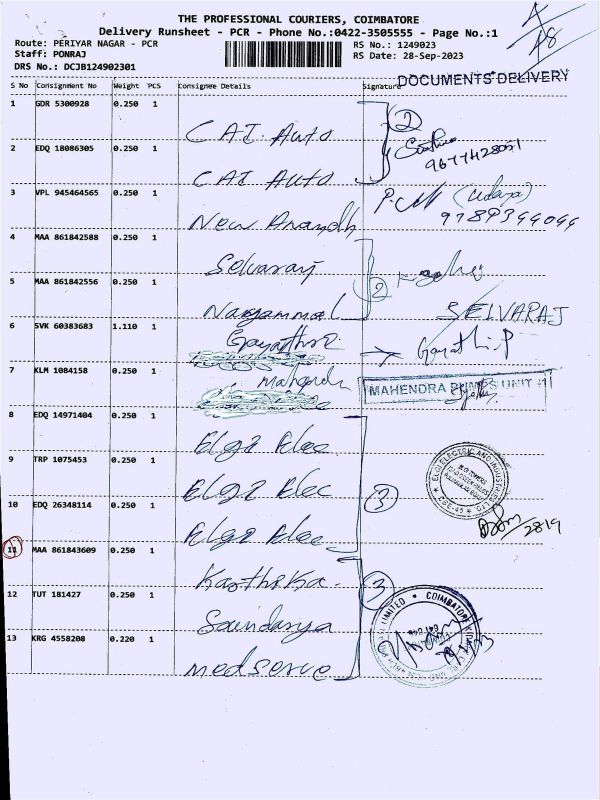 THE PROFESSIONAL COURIERS, COIMBATORE
Delivery Runsheet - PCR - Phone No.:0422-3505555 - Page No.:1
4/48
Route: PERIYAR NAGAR - PCR RS No.: 1249023
Staff: PONRAJ RS Date: 28-Sep-2023
DRS No.: DCJB124902301
DOCUMENTS DELIVERY
S No Consignment No Weight PCS Consignee Details Signature
1 GDR 5300928 0.250 1 CAI Auto
2
2 EDQ 18086305 0.250 1 CAI Auto
9677428051
3 VPL 945464565 0.250 1 New Anandh
(Udaya)
9789394094
4 MAA 861842588 0.250 1 Selvaraj
2
5 MAA 861842556 0.250 1 Nanjammal
SELVARAJ
6 SVK 60383683 1.110 1 Gayathri
Gayathri.P
7 KLM 1084158 0.250 1 Mahendr
MAHENDRA PUMPS UNIT
8 EDQ 14971404 0.250 1 Elgi Elec
9 TRP 1075453 0.250 1 Elgi Elec
ELGI ELECTRIC AND INDUSTRIES LTD
CBE-45
3
10 EDQ 26348114 0.250 1 Elgi Elec
28/9
11 MAA 861843609 0.250 1 Karthika
3
12 TUT 181427 0.250 1 Soundarya
LIMITED * COIMBATORE
13 KRG 4558208 0.220 1 medserve